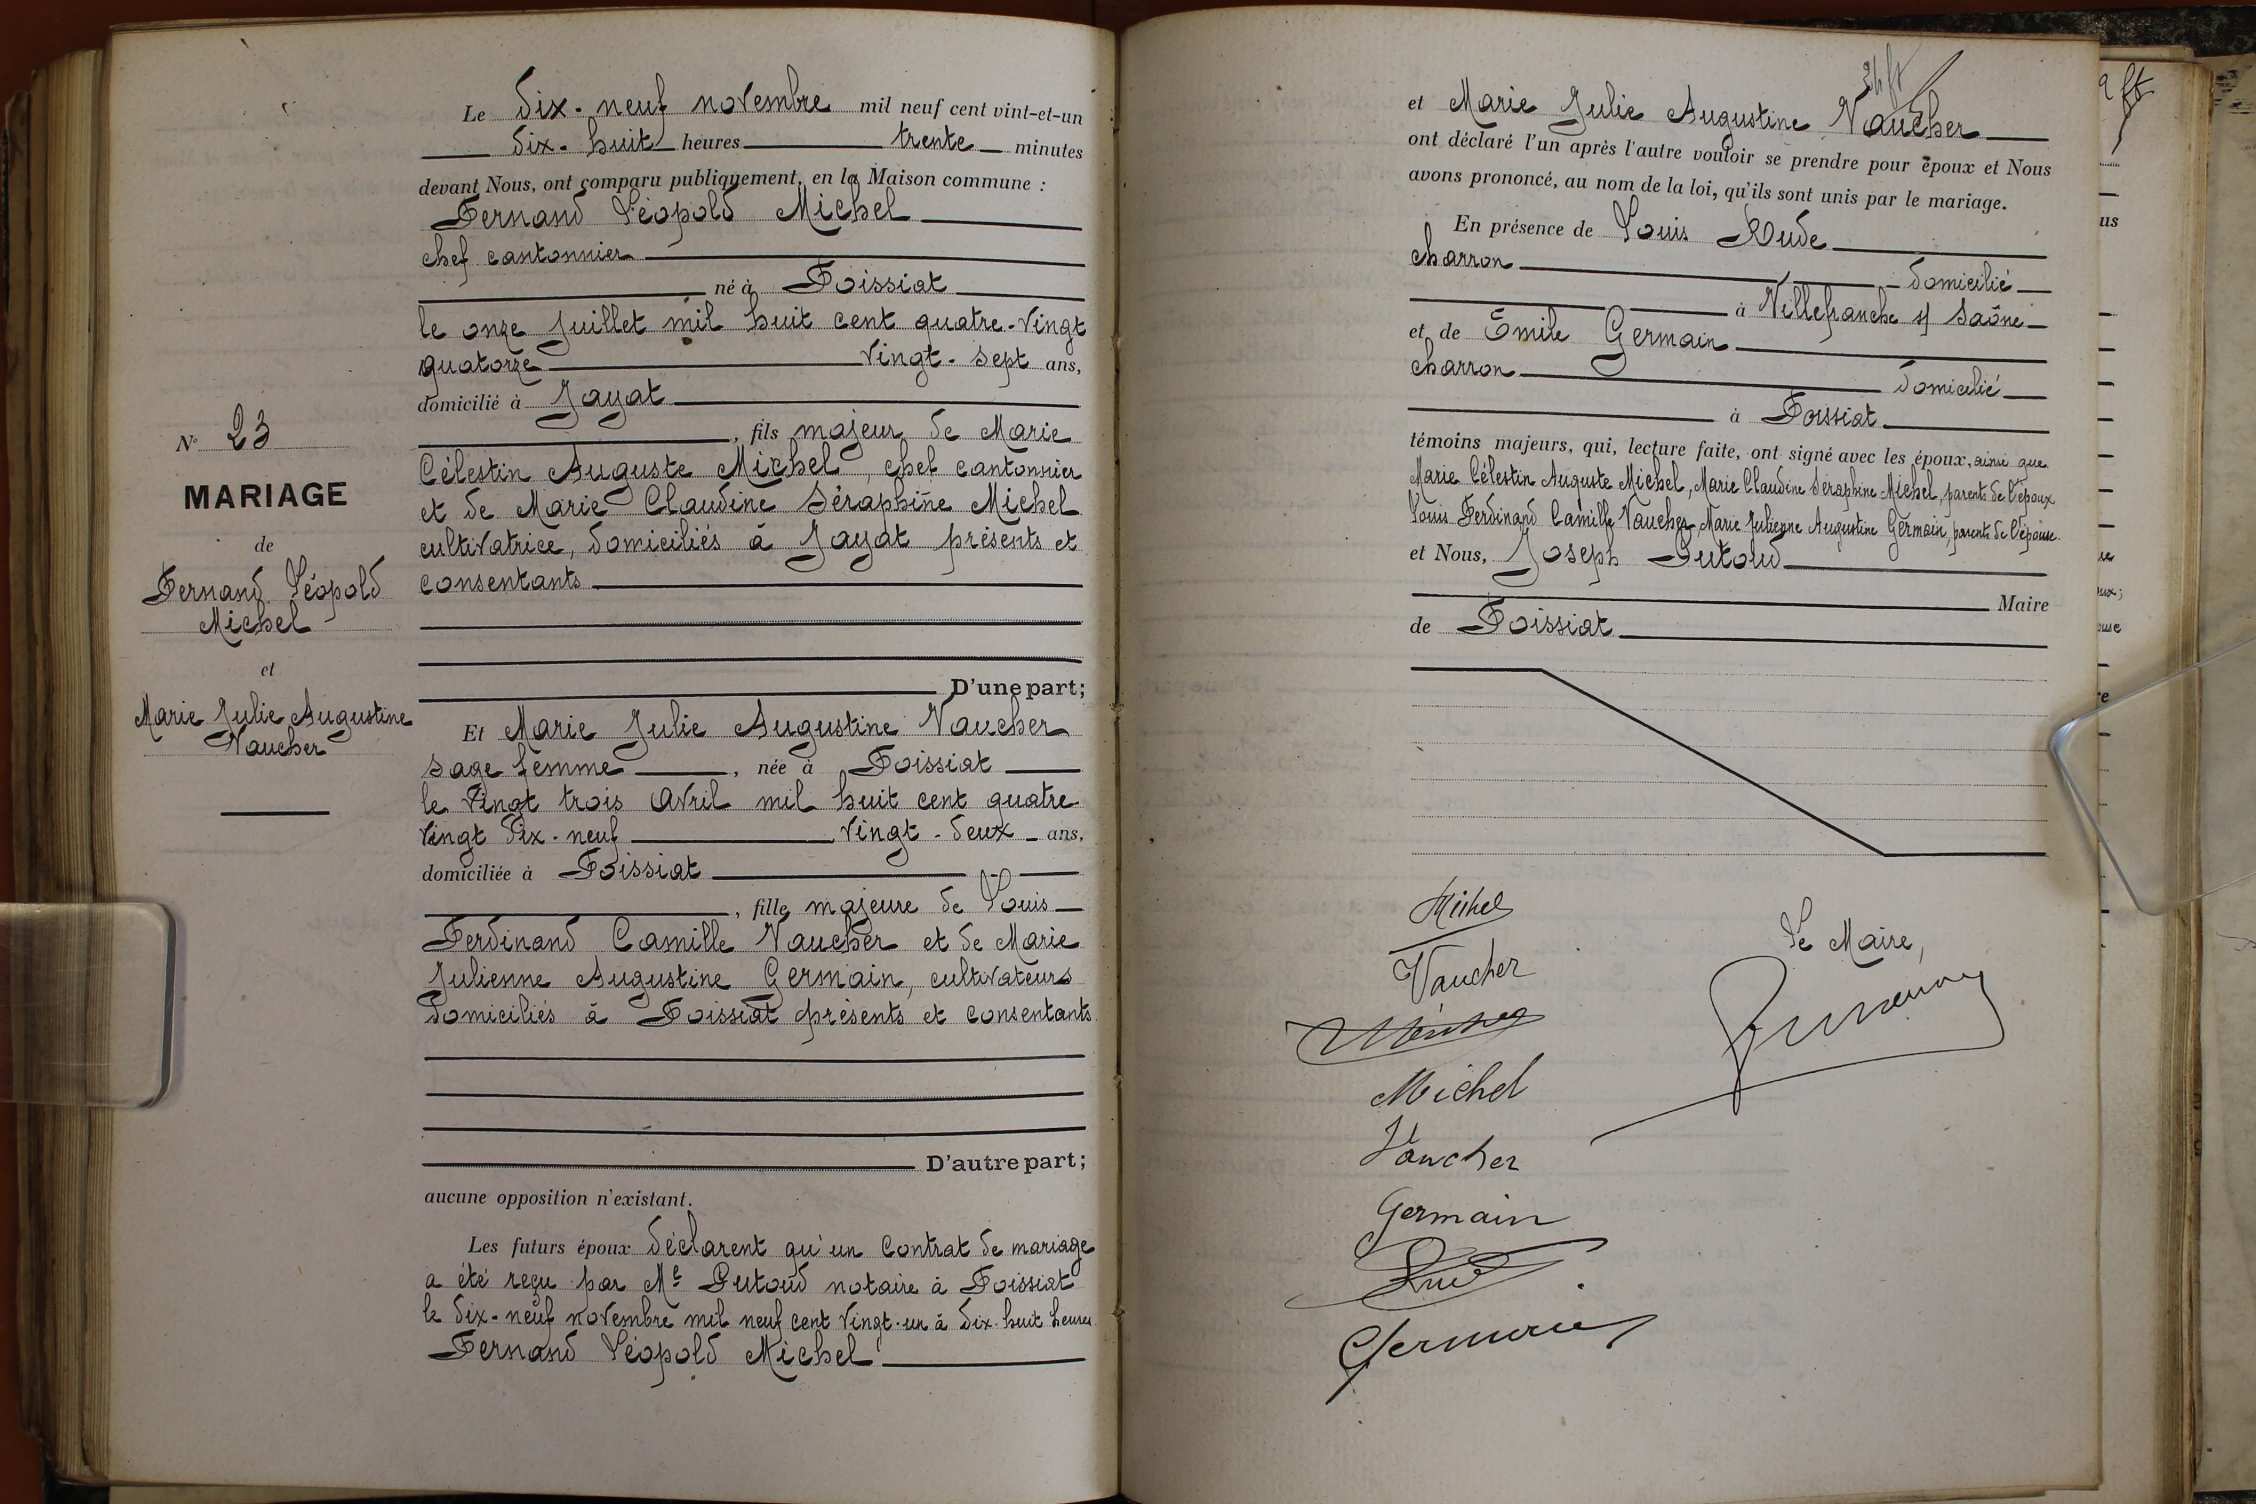 N° 23
MARIAGE
de
Fernand Léopold
Michel
et
Marie Julie Augustine
Vaucher
Le dix-neuf novembre mil neuf cent vint-et-un
dix-huit heures trente minutes
devant Nous, ont comparu publiquement, en la Maison commune :
Fernand Léopold Michel
chef cantonnier
né à Foissiat
le onze Juillet mil huit cent quatre-vingt
quatorze vingt-sept ans,
domicilié à Jayat
, fils majeur de Marie
Célestin Auguste Michel, chef cantonnier
et de Marie Claudine Séraphine Michel
cultivatrice, domiciliés à Jayat présents et
consentants
D'une part;
Et Marie Julie Augustine Vaucher
sage femme, née à Foissiat
le vingt trois Avril mil huit cent quatre
vingt dix-neuf vingt-deux ans,
domiciliée à Foissiat
, fille majeure de Louis
Ferdinand Camille Vaucher et de Marie
Julienne Augustine Germain, cultivateurs
domiciliés à Foissiat présents et consentants
D'autre part;
aucune opposition n'existant.
Les futurs époux déclarent qu'un Contrat de mariage
a été reçu par Me Dutoud notaire à Foissiat
le dix-neuf novembre mil neuf cent vingt-un à dix-huit heures
Fernand Léopold Michel
et Marie Julie Augustine Vaucher
ont déclaré l'un après l'autre vouloir se prendre pour époux et Nous
avons prononcé, au nom de la loi, qu'ils sont unis par le mariage.
En présence de Louis Rude
charron domicilié
à Villefranche s/ Saône
et de Emile Germain
charron domicilié
à Foissiat
témoins majeurs, qui, lecture faite, ont signé avec les époux, ainsi que
Marie Célestin Auguste Michel, Marie Claudine Séraphine Michel, parents de l'époux
Louis Ferdinand Camille Vaucher, Marie Julienne Augustine Germain, parents de l'épouse
et Nous, Joseph Dutoud
Maire
de Foissiat
Michel
Vaucher
Michel
Vaucher
Germain
Rude
Germain
Le Maire,